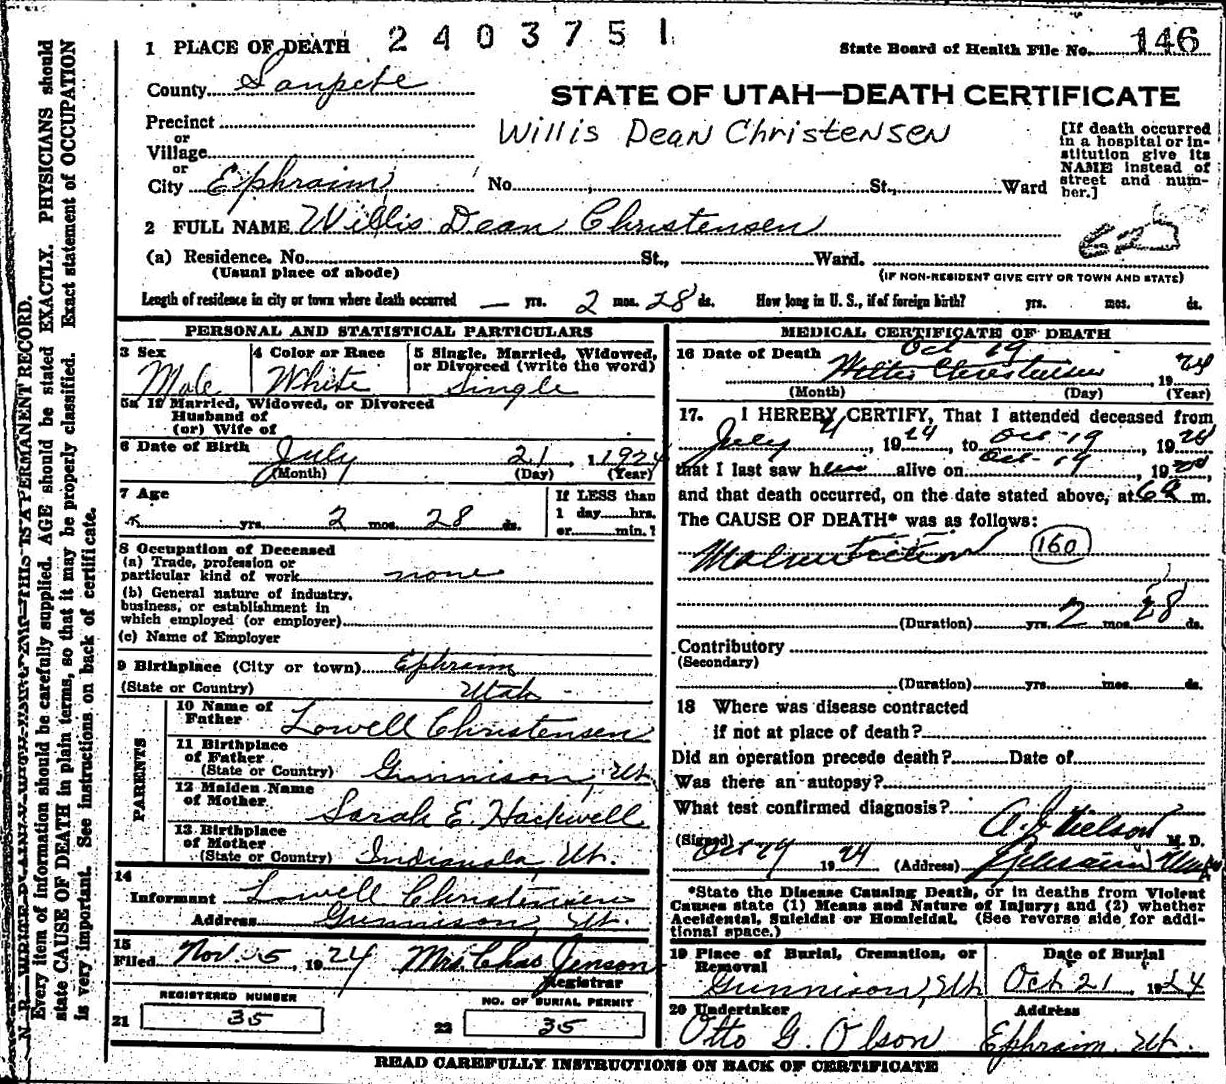 2403751
State Board of Health File No. 146
1 PLACE OF DEATH
County Sanpete
STATE OF UTAH—DEATH CERTIFICATE
Precinct
or
Village
or
City Ephraim No. , St., Ward
Willis Dean Christensen
[If death occurred
in a hospital or in-
stitution give its
NAME instead of
street and num-
ber.]
2 FULL NAME Willis Dean Christensen
(a) Residence. No. St., Ward.
(Usual place of abode)
(IF NON-RESIDENT GIVE CITY OR TOWN AND STATE)
Length of residence in city or town where death occurred — yrs. 2 mos. 28 ds. How long in U. S., if of foreign birth? yrs. mos. ds.
PERSONAL AND STATISTICAL PARTICULARS
3 Sex
Male
4 Color or Race
White
5 Single, Married, Widowed,
or Divorced (write the word)
Single
5a If Married, Widowed, or Divorced
Husband of
(or) Wife of
6 Date of Birth July 21, 1924
(Month) (Day) (Year)
7 Age
yrs. 2 mos. 28 ds.
If LESS than
1 day hrs.
or min.?
8 Occupation of Deceased
(a) Trade, profession or
particular kind of work none
(b) General nature of industry,
business, or establishment in
which employed (or employer)
(c) Name of Employer
9 Birthplace (City or town) Ephraim
(State or Country) Utah
PARENTS
10 Name of
Father Lowell Christensen
11 Birthplace
of Father
(State or Country) Gunnison, Ut.
12 Maiden Name
of Mother Sarah E. Hackwell
13 Birthplace
of Mother
(State or Country) Indianola, Ut.
14
Informant Lowell Christensen
Address Gunnison, Ut.
15
Filed Nov 5, 1924 Mrs. Chas Jenson
Registrar
REGISTERED NUMBER
21 35
NO. OF BURIAL PERMIT
22 35
MEDICAL CERTIFICATE OF DEATH
16 Date of Death Oct 19
Christensen, 1924
(Month) (Day) (Year)
17. I HEREBY CERTIFY, That I attended deceased from
July, 1924, to Oct-19, 1924
that I last saw h alive on Oct-19, 19
and that death occurred, on the date stated above, at 6 m.
The CAUSE OF DEATH* was as follows:
Malnutrition 160
(Duration) yrs. 2 mos. 28 ds.
Contributory
(Secondary)
(Duration) yrs. mos. ds.
18 Where was disease contracted
if not at place of death?
Did an operation precede death? Date of
Was there an autopsy?
What test confirmed diagnosis?
(Signed) Nielson M. D.
Oct, 1924 (Address) Ephraim Utah
*State the Disease Causing Death, or in deaths from Violent
Causes state (1) Means and Nature of Injury; and (2) whether
Accidental, Suicidal or Homicidal. (See reverse side for addi-
tional space.)
19 Place of Burial, Cremation, or
Removal
Gunnison, Ut.
Date of Burial
Oct 21, 1924
20 Undertaker
Otto G. Olson
Address
Ephraim. Ut.
READ CAREFULLY INSTRUCTIONS ON BACK OF CERTIFICATE
THIS IS A PERMANENT RECORD.
Every item of information should be carefully supplied. AGE should be stated EXACTLY. PHYSICIANS should
state CAUSE OF DEATH in plain terms, so that it may be properly classified. Exact statement of OCCUPATION
is very important. See instructions on back of certificate.